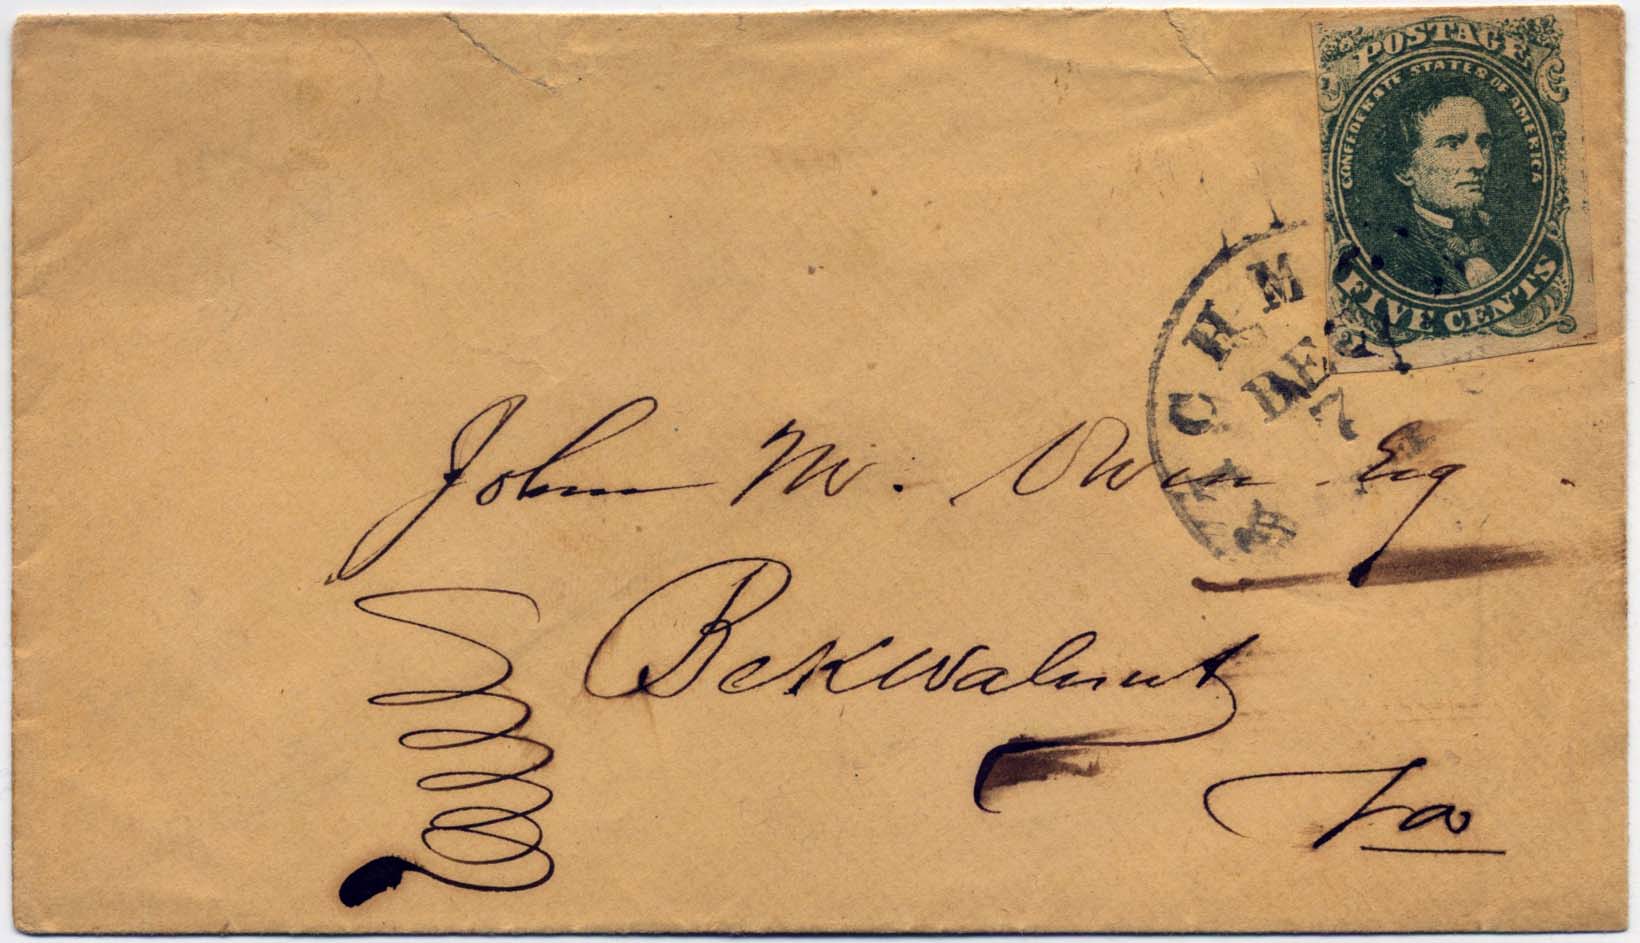 POSTAGE
CONFEDERATE STATES OF AMERICA
FIVE CENTS
RICHM
DEC
7
John M. Owen Esq
BckWalnut
Va